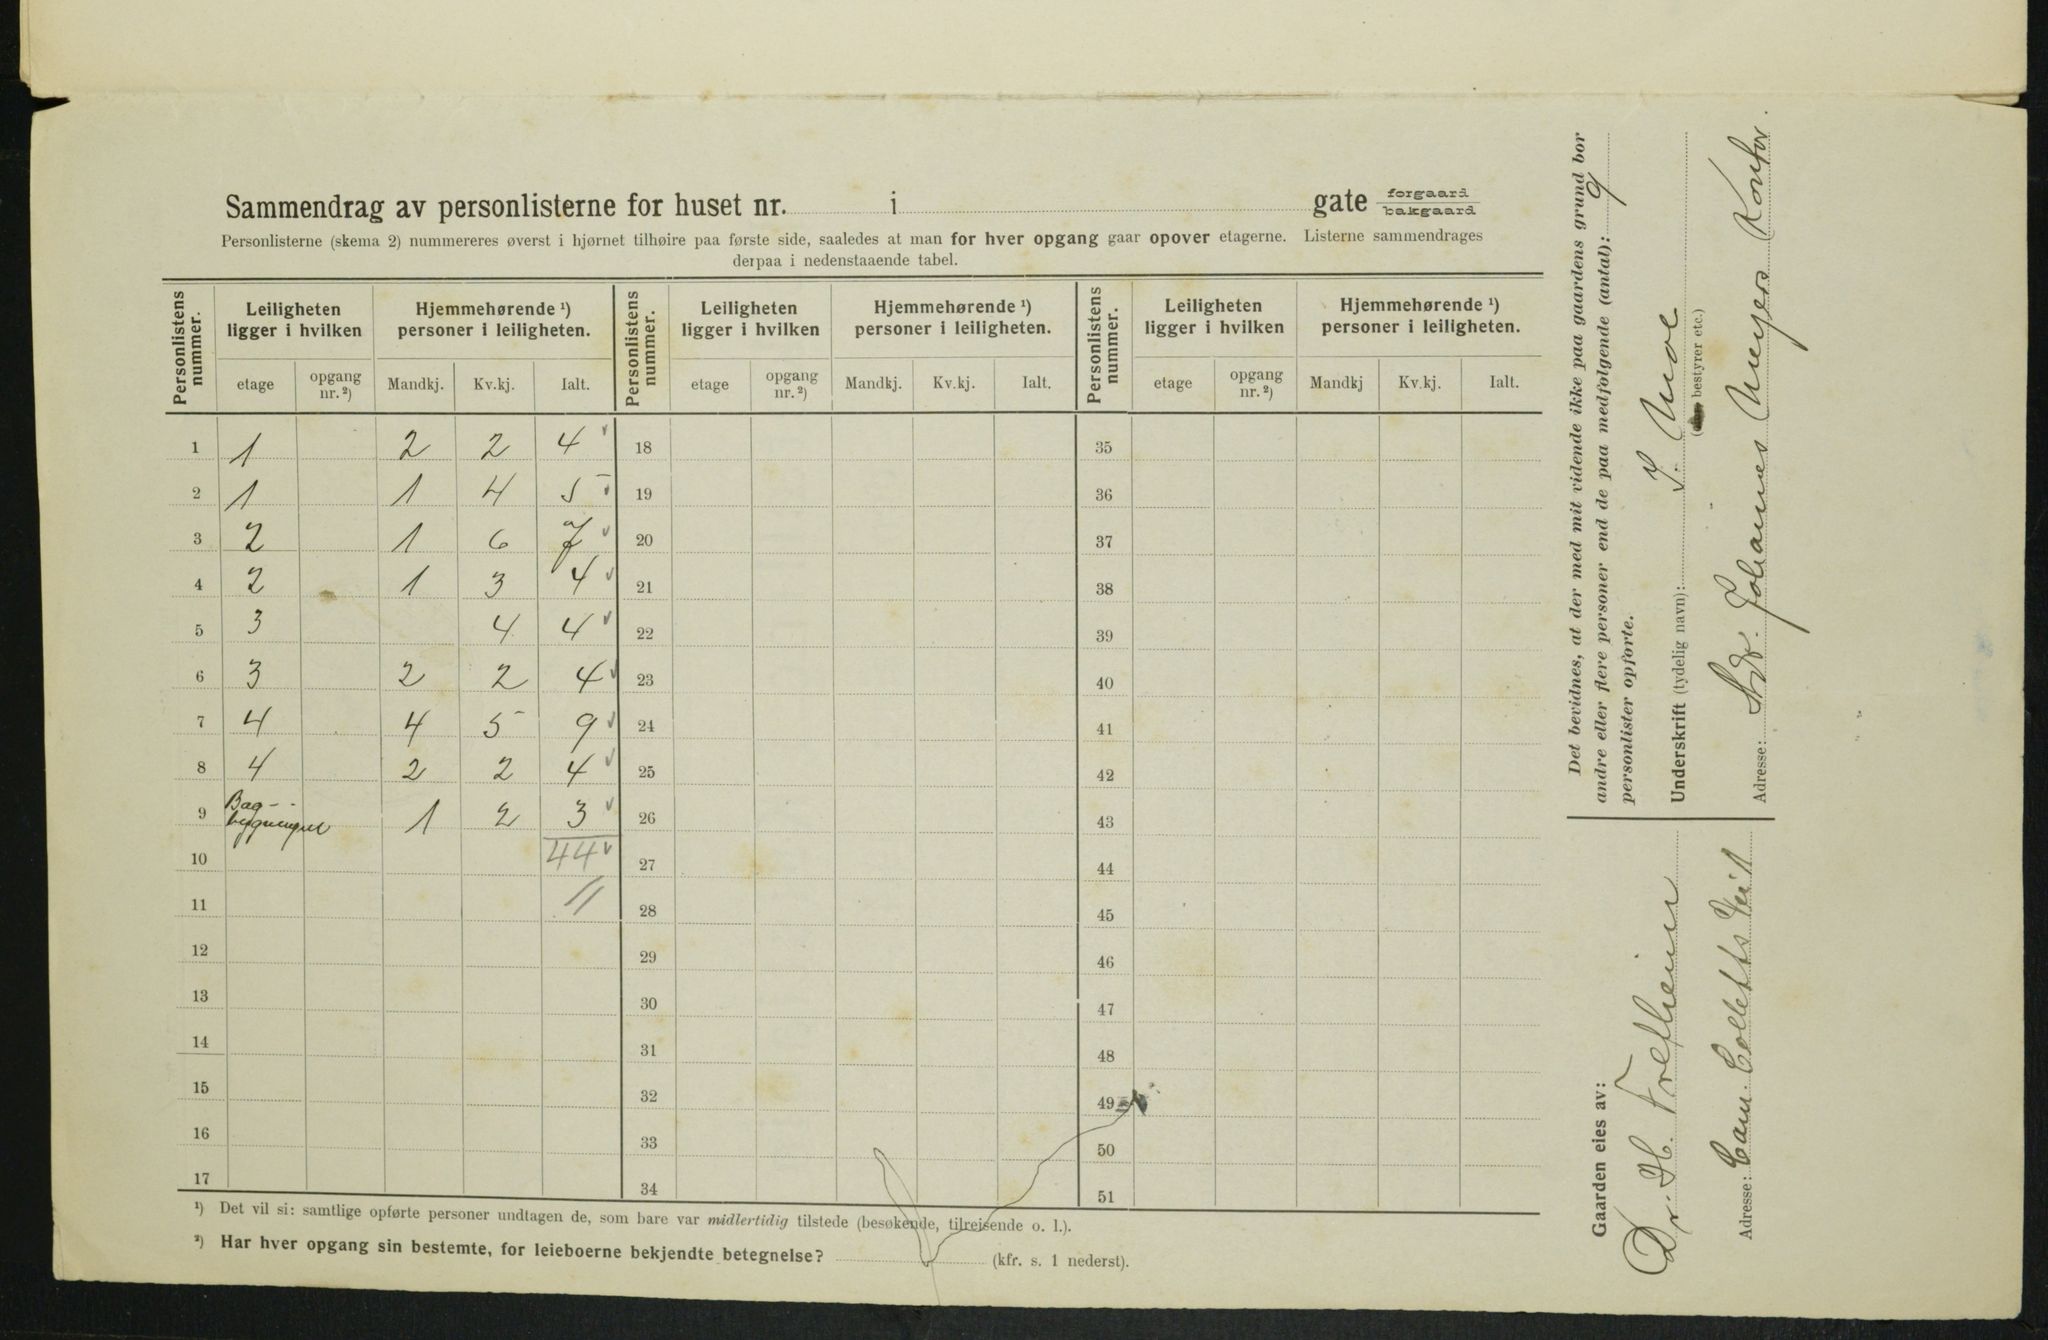 Sammendrag av personlisterne for huset nr. i gate forgaard bakgaard
Personlisterne (skema 2) nummereres øverst i hjørnet tilhøire paa første side, saaledes at man for hver opgang gaar opover etagerne. Listerne sammendrages
derpaa i nedenstaaende tabel.
Personlistens nummer. Leiligheten ligger i hvilken Hjemmehørende ¹) personer i leiligheten. Personlistens nummer. Leiligheten ligger i hvilken Hjemmehørende ¹) personer i leiligheten. Personlistens nummer. Leiligheten ligger i hvilken Hjemmehørende ¹) personer i leiligheten.
etage opgang nr. ²) Mandkj. Kv.kj. Ialt. etage opgang nr. ²) Mandkj. Kv.kj. Ialt. etage opgang nr. ²) Mandkj Kv.kj. Ialt.
1 1 2 2 4 18 35
2 1 1 4 5 19 36
3 2 1 6 7 20 37
4 2 1 3 4 21 38
5 3 4 4 22 39
6 3 2 2 4 23 40
7 4 4 5 9 24 41
8 4 2 2 4 25 42
9 Bag- 1 2 3 26 43
10 44 27 44
11 11 28 45
12 29 46
13 30 47
14 31 48
15 32 49
16 33 50
17 34 51
¹) Det vil si: samtlige opførte personer undtagen de, som bare var midlertidig tilstede (besøkende, tilreisende o. l.).
²) Har hver opgang sin bestemte, for leieboerne bekjendte betegnelse? (kfr. s. 1 nederst).
Det bevidnes, at der med mit vidende ikke paa gaardens grund bor
andre eller flere personer end de paa medfølgende (antal): 9
personlister opførte.
Underskrift (tydelig navn): S. Moe
(bestyrer etc.)
Adresse: Johannes Meyers Kontor.
Gaarden eies av:
Dr. H. Fretheim
Adresse: Cam. Colletts Vei 1